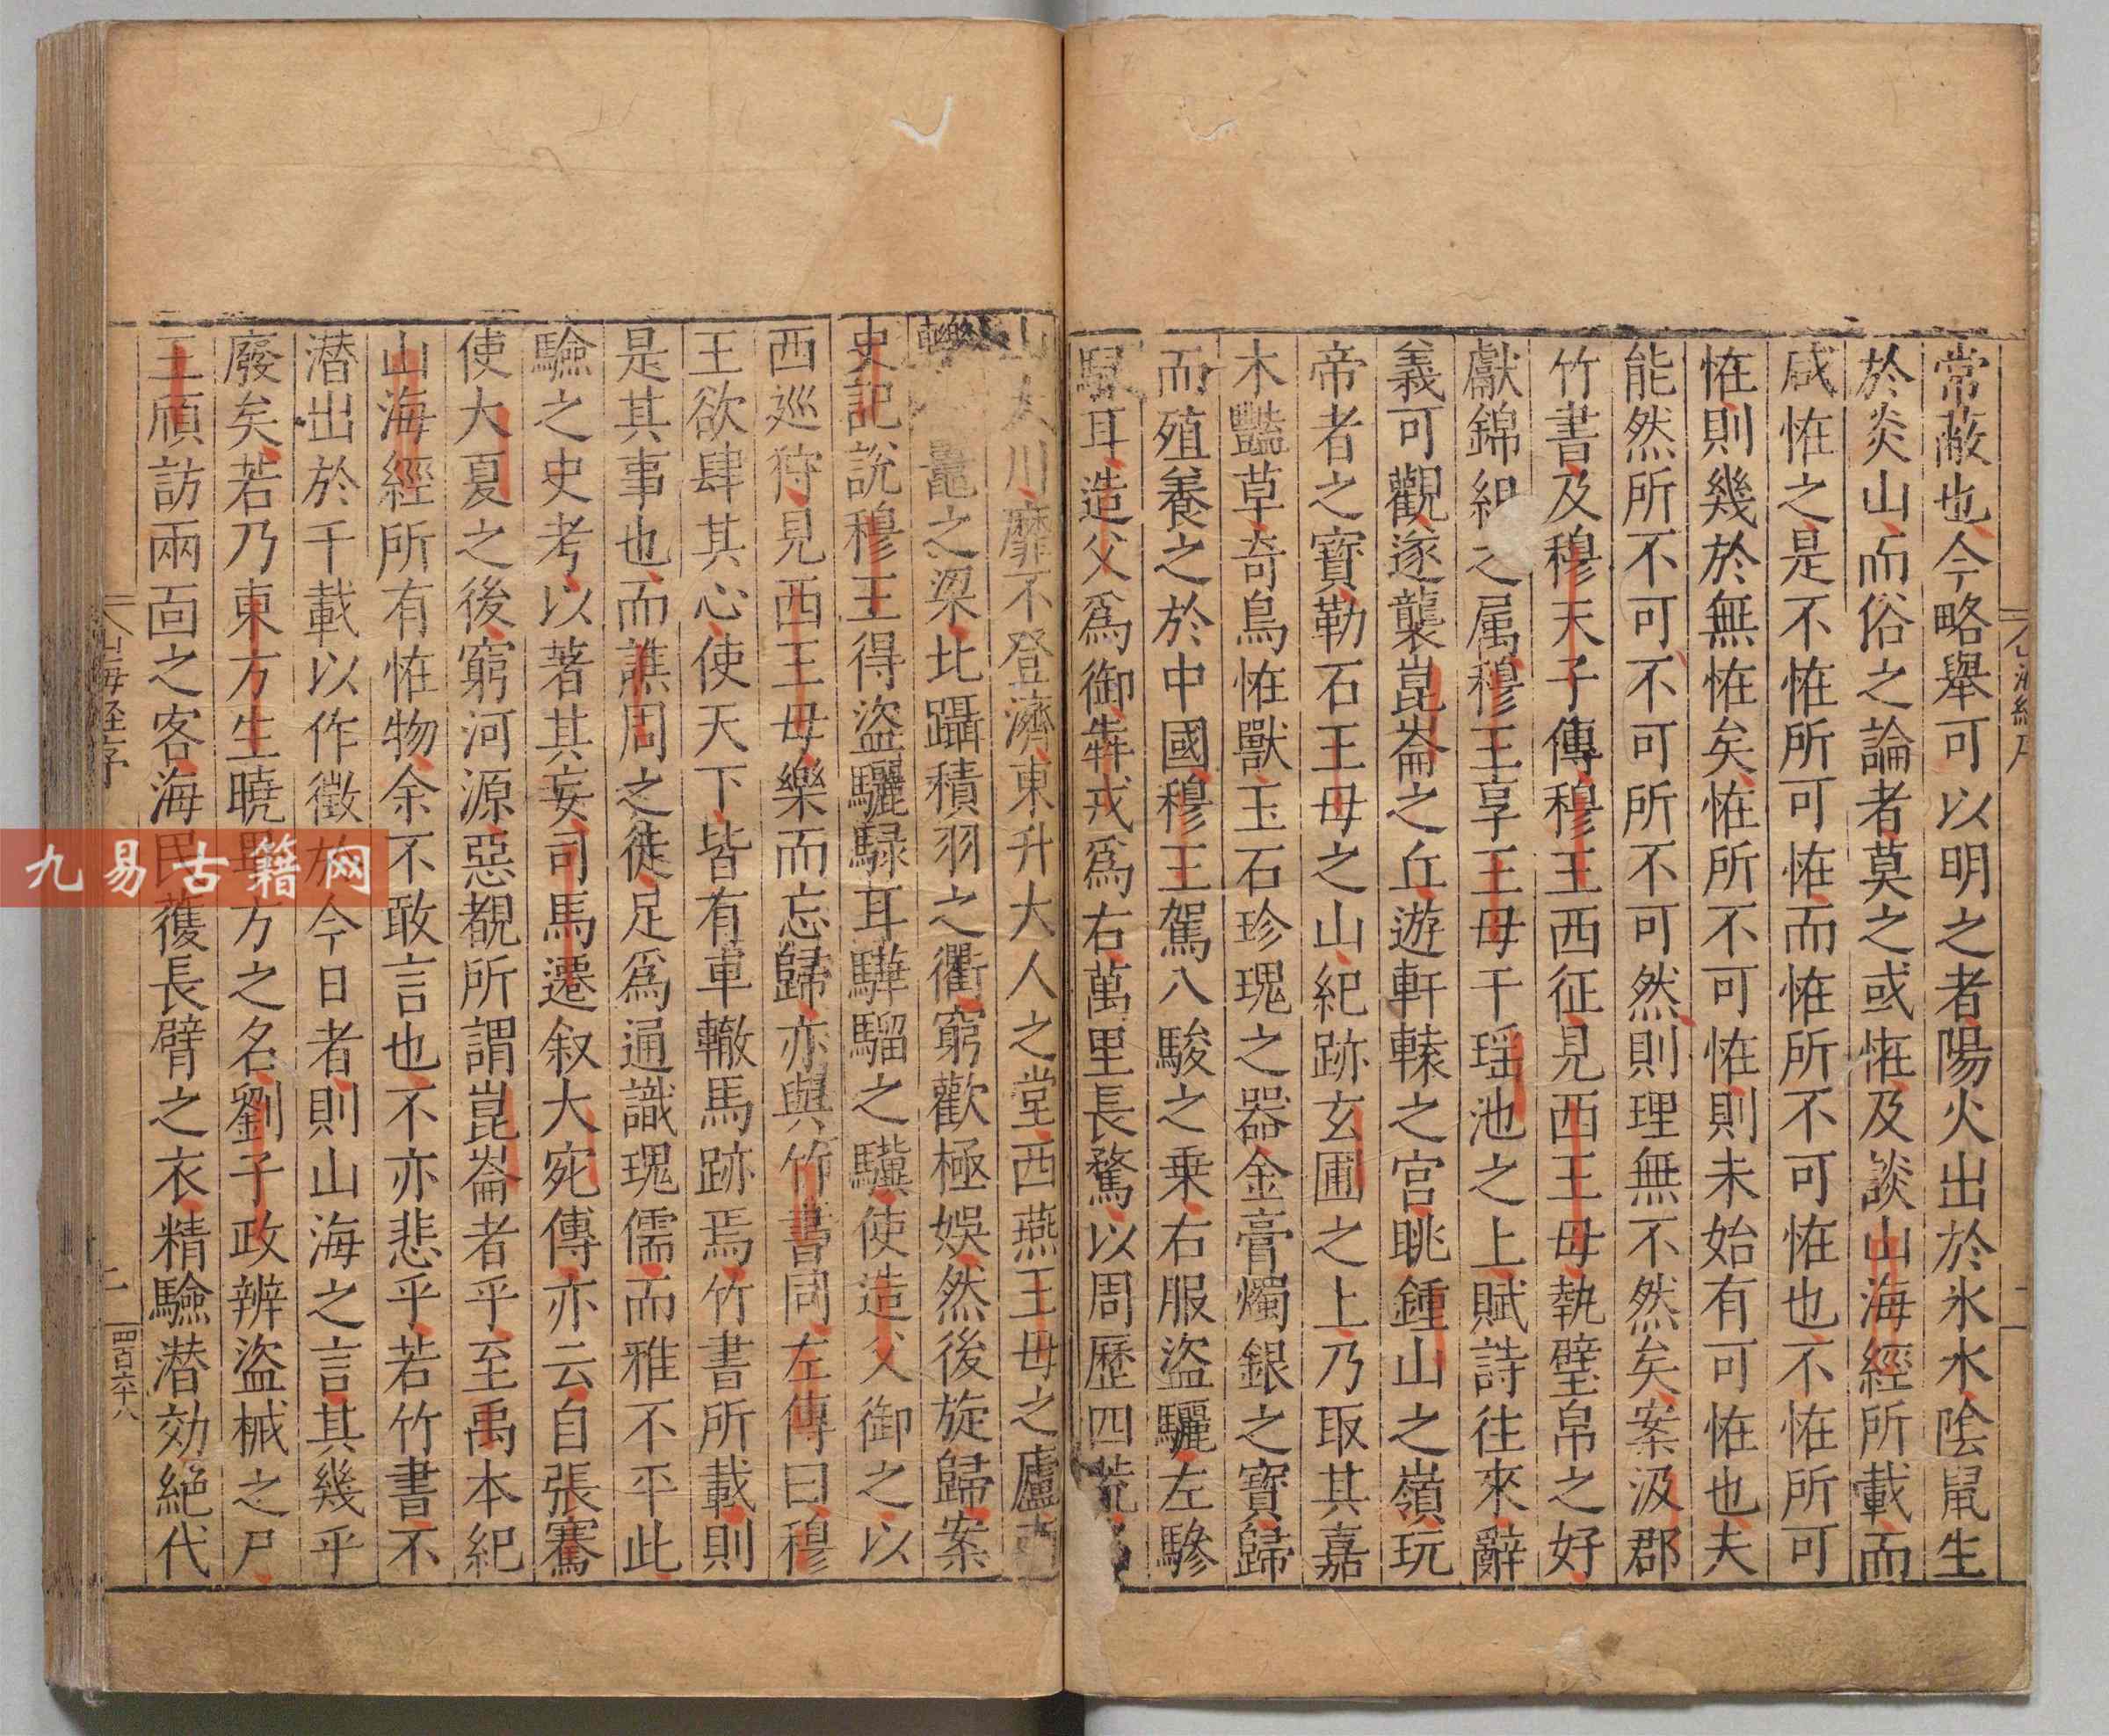 常敝也今略舉可以明之者陽火出於氷水陰鼠生
於炎山而俗之論者莫之或恠及談山海經所載而
咸恠之是不恠所可恠而恠所不可恠也不恠所可
恠則幾於無恠矣恠所不可恠則未始有可恠也夫
能然所不可不可所不可然則理無不然矣案汲郡
竹書及穆天子傳穆王西征見西王母執璧帛之好
獻錦組之属穆王享王母于瑶池之上賦詩往來辭
義可觀遂襲崑崙之丘遊軒轅之宮眺鍾山之嶺玩
帝者之寶勒石王母之山紀跡玄圃之上乃取其嘉
木豔草奇鳥恠獸玉石珍瑰之器金膏燭銀之寶歸
而殖養之於中國穆王駕八駿之乗右服盗驪左驂
騄耳造父爲御犇戎爲右萬里長騖以周歷四荒
山大川靡不登濟東升大人之堂西燕王母之廬
轢黿鼉之梁北躡積羽之衢窮歡極娛然後旋歸案
史記說穆王得盗驪騄耳驊騮之驥使造父御之以
西巡狩見西王母樂而忘歸亦與竹書同左傳曰穆
王欲肆其心使天下皆有車轍馬跡焉竹書所載則
是其事也而譙周之徒足爲通識瑰儒而雅不平此
驗之史考以著其妄司馬遷叙大宛傳亦云自張騫
使大夏之後窮河源惡覩所謂崑崙者乎至禹本紀
山海經所有恠物余不敢言也不亦悲乎若竹書不
潜出於千載以作徵於今日者則山海之言其幾乎
廢矣若乃東方生曉畢方之名劉子政辨盗械之尸
王頎訪兩靣之客海民獲長臂之衣精驗潜効絶代
山海経序
二
四百六十八
九易古籍网